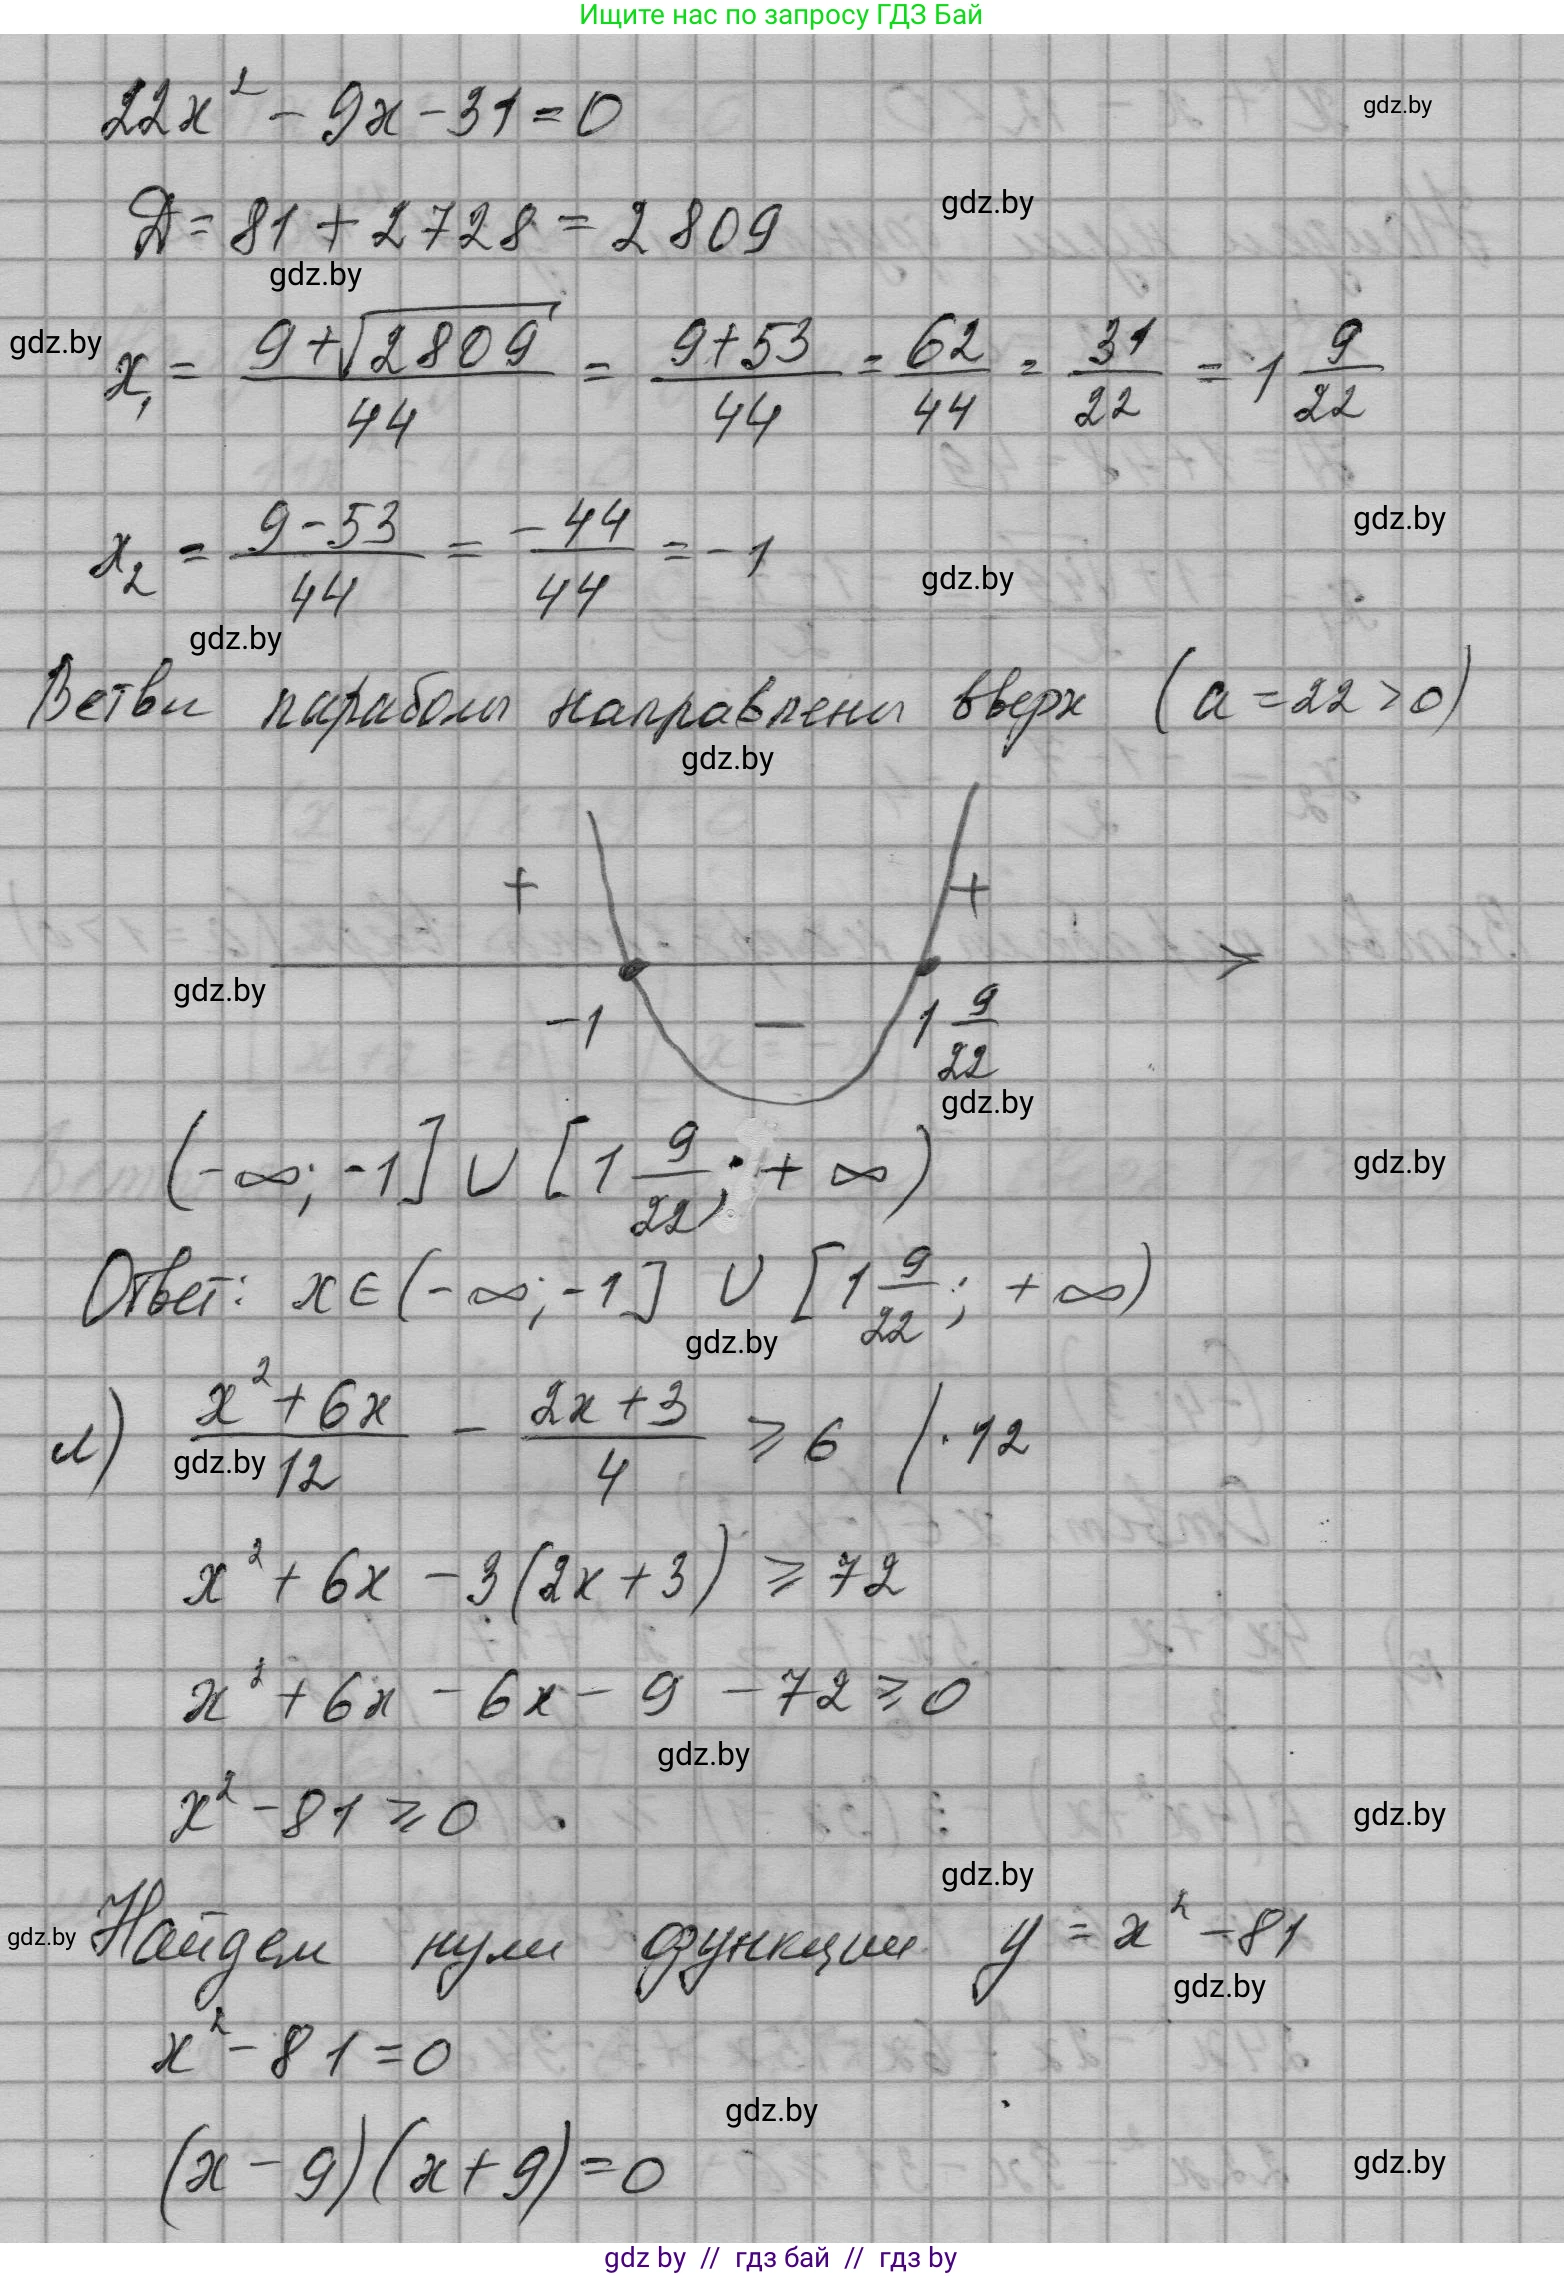 Ищите нас по запросу ГДЗ Бай
22x² - 9x - 31 = 0
gdz.by
Д = 81 + 2728 = 2809
gdz.by
gdz.by
gdz.by
x₁ = (9+√2809)/44 = (9+53)/44 = 62/44 = 31/22 = 1 9/22
x₂ = (9-53)/44 = -44/44 = -1
gdz.by
gdz.by
gdz.by
Ветви параболы направлены вверх (a = 22 > 0)
gdz.by
+ +
gdz.by
-1 - 1 9/22
gdz.by
(-∞; -1] ∪ [1 9/22; +∞)
gdz.by
Ответ: x ∈ (-∞; -1] ∪ [1 9/22; +∞)
gdz.by
л) (x² + 6x)/12 - (2x + 3)/4 ≥ 6 / · 12
gdz.by
x² + 6x - 3(2x + 3) ≥ 72
x² + 6x - 6x - 9 - 72 ≥ 0
gdz.by
x² - 81 ≥ 0.
gdz.by
gdz.by
gdz.by
Найдем нули функции y = x² - 81
gdz.by
x² - 81 = 0
gdz.by
(x - 9)(x + 9) = 0
gdz.by
gdz by // гдз бай // гдз by